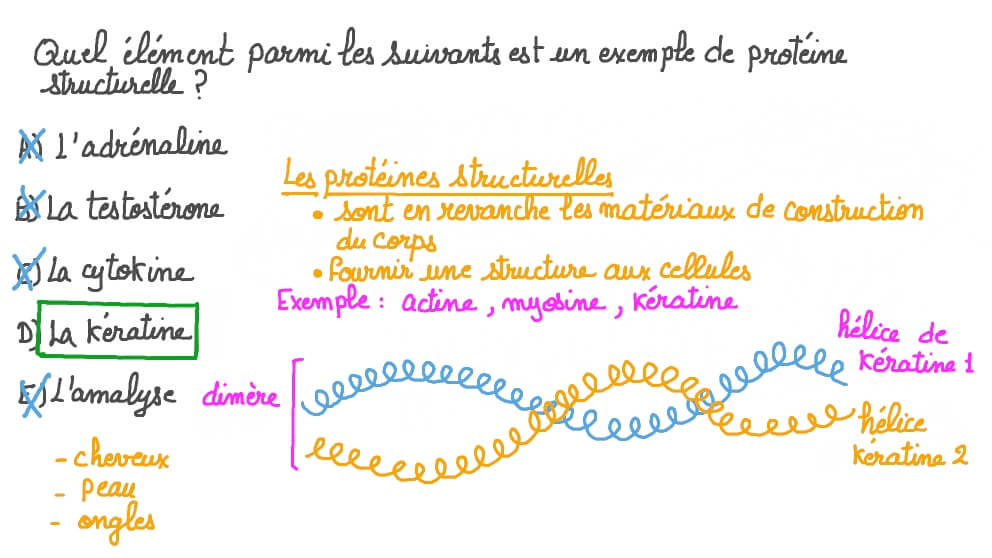 Quel élément parmi les suivants est un exemple de protéine
structurelle ?
A) L'adrénaline
B) La testostérone
C) La cytokine
D) La kératine
E) L'amalyse
- cheveux
- peau
- ongles
Les protéines structurelles
• sont en revanche les matériaux de construction
du corps
• fournir une structure aux cellules
Exemple : actine , myosine , kératine
dimère
hélice de
kératine 1
hélice
kératine 2